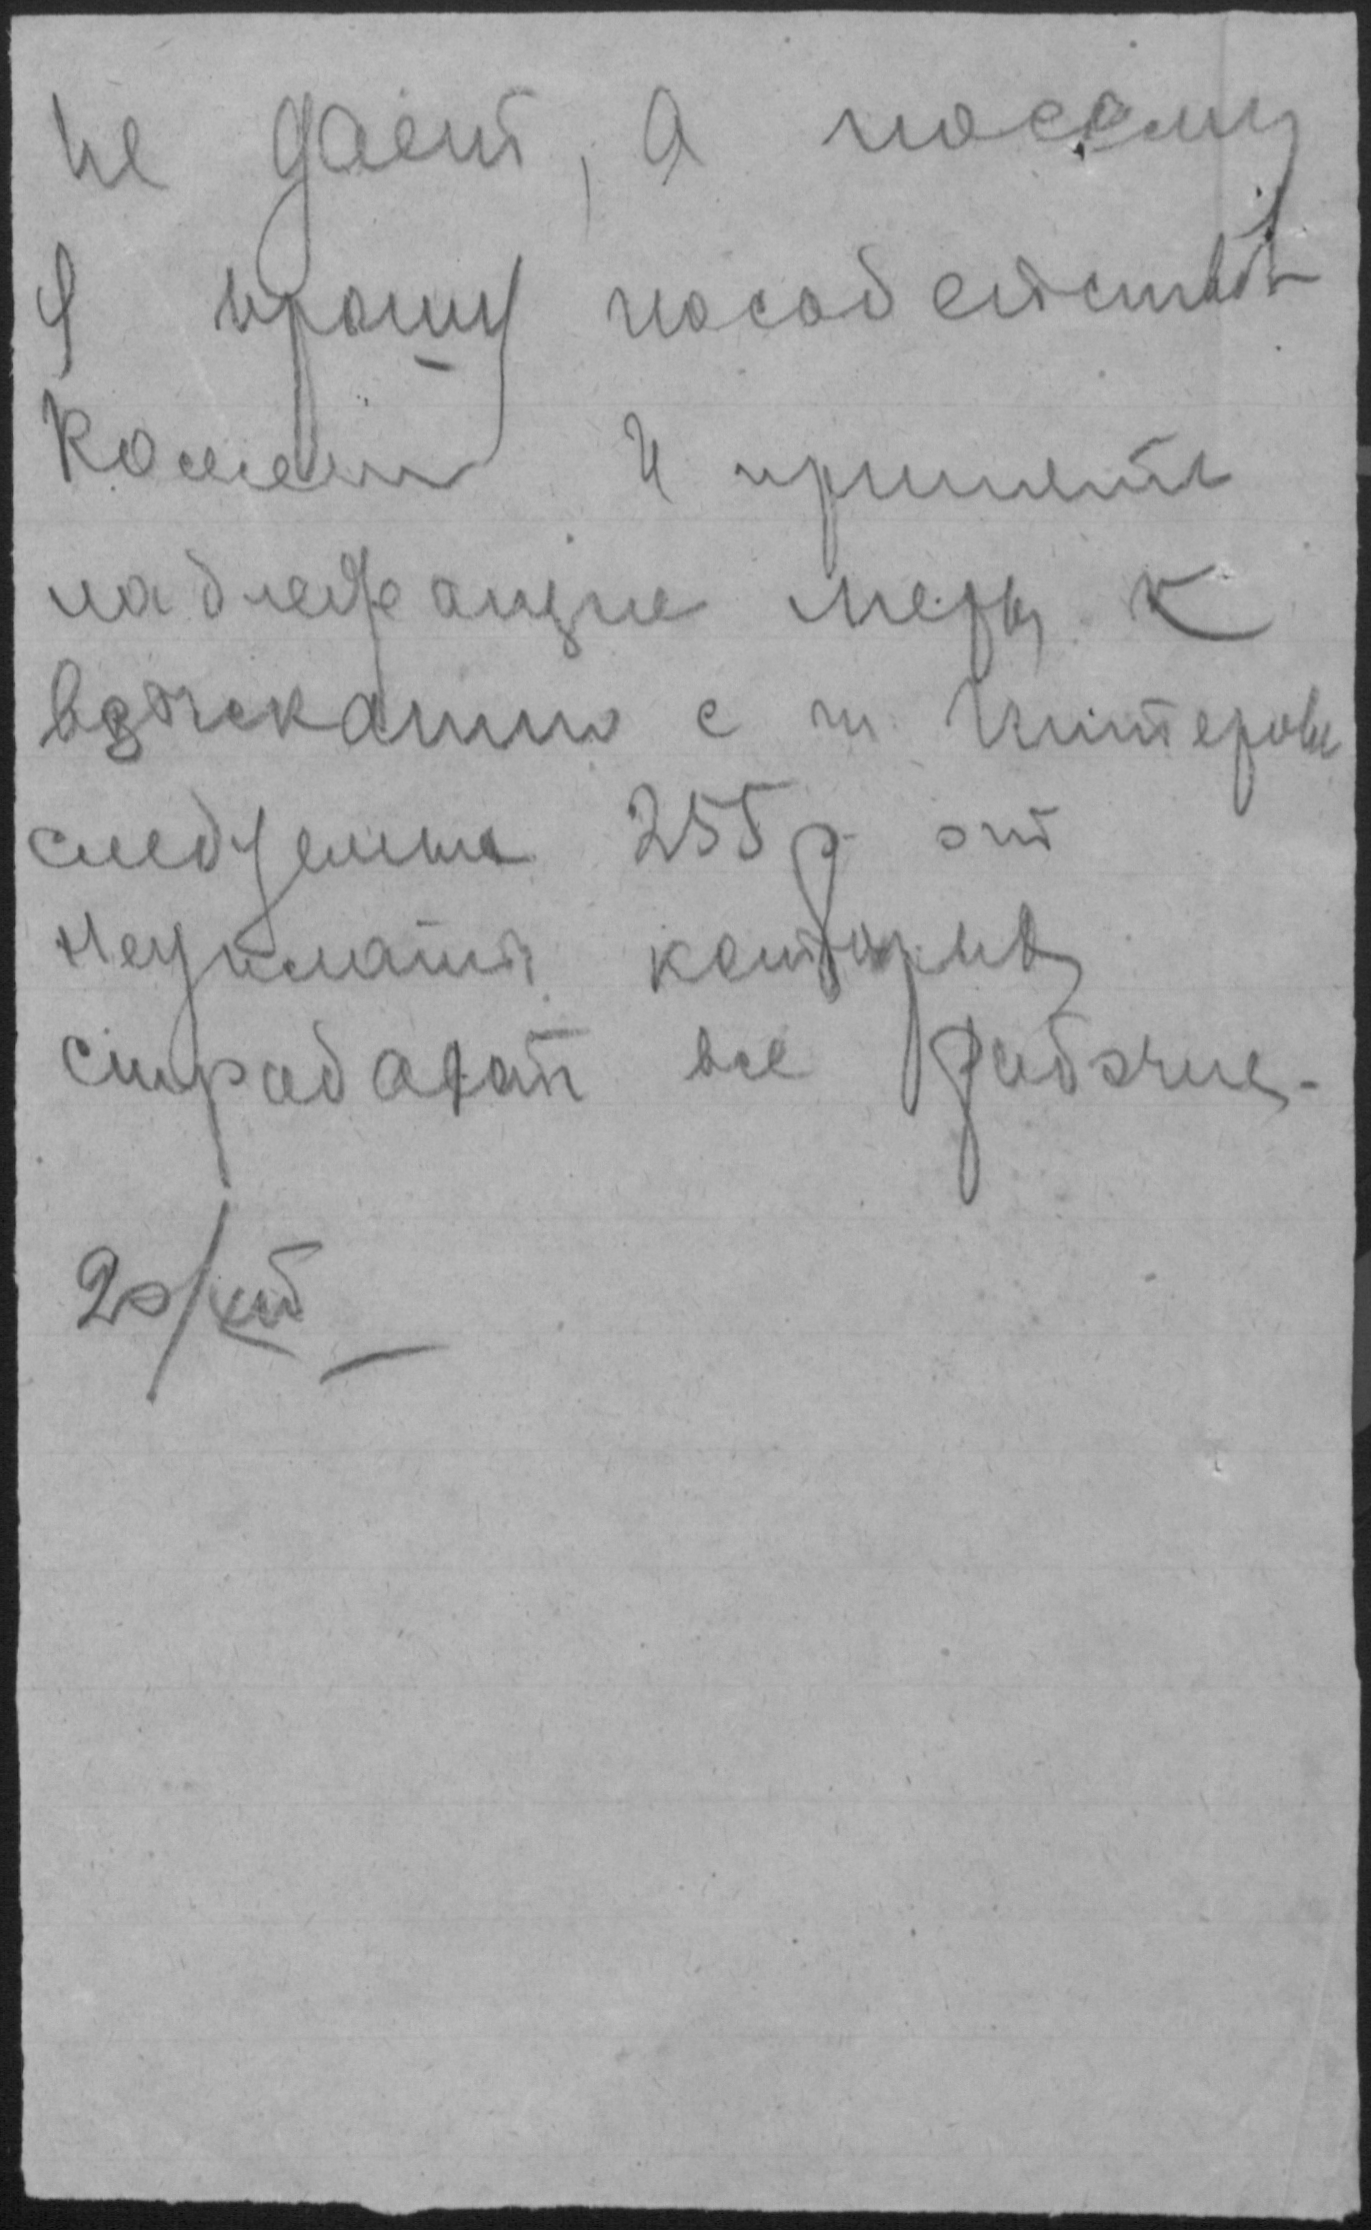 не дает, а посему
я прошу посодействов
Комет и принять
надлежащие меры к
взысканию с т.
следуемых 255 р. от
неуплаты которых
страдают все рабочие.
20/XII